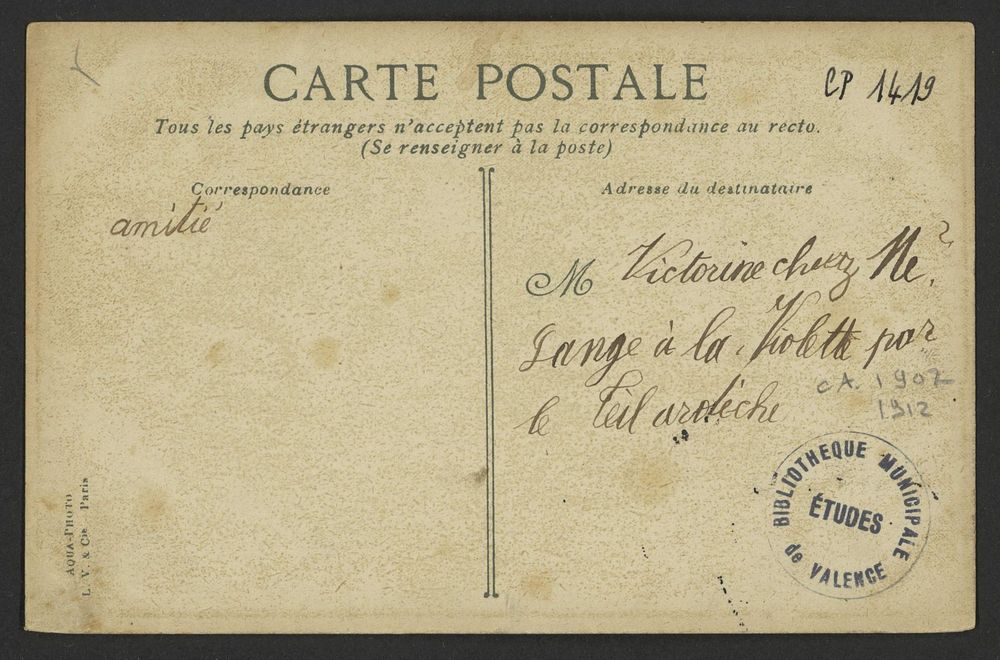 CARTE POSTALE
CP 1419
Tous les pays étrangers n'acceptent pas la correspondance au recto.
(Se renseigner à la poste)
Correspondance
amitié
Adresse du destinataire
M Victorine chez Me
à la Violette par
le Teil ardèche
CA. 1907
1912
BIBLIOTHEQUE MUNICIPALE
ÉTUDES
de VALENCE
AQUA-PHOTO
L. V. & Cie Paris